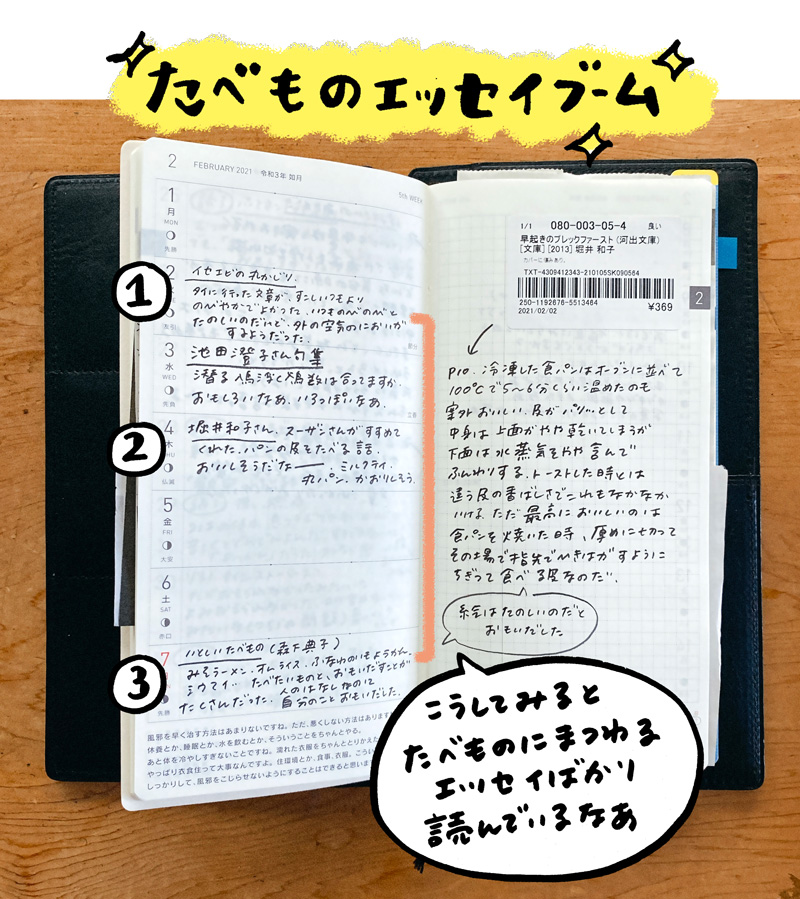 たべものエッセイブーム
2 FEBRUARY 2021 令和3年 如月
5th WEEK
1
月
MON
先勝
①
2
イセエビの丸かじり.
タイに行った文章が、すこしいつもより
のべやかでよかった。いつものべのべと
たのしいのだけど、外の空気のにおいが
するようだった。
友引
節分
3
水
WED
先負
池田澄子さん句集
おもしろいなあ、いろっぽいなあ。
立春
②
4
木
THU
仏滅
堀井和子さん. スーザンさんがすすめて
くれた. パンの皮をたべる話.
おいしそうだなー. ミルクティ.
丸パン. かおりしそう.
5
金
FRI
大安
6
土
SAT
赤口
③
7
先勝
いとしいたべもの(森下典子)
みそラーメン. オムライス. ふなわのいもようかん.
シウマイ… たべたいものと、おもいだすことが
たくさんだった. 人のはなしなので
自分のことおもいだした.
風邪を早く治す方法はあまりないですね。ただ、悪くしない方法はあります
休養とか、睡眠とか、水を飲むとか、そういうことをちゃんとやる。
あと体を冷やしすぎないことですね。濡れた衣服をちゃんととりかえた
やっぱり衣食住って大事なんですよ。住環境とか、食事、衣服、こうい
しっかりして、風邪をこじらせないようにすることはできると思いま
1/1 080-003-05-4 良い
早起きのブレックファースト (河出文庫)
[文庫] [2013] 堀井 和子
カバーに傷みあり。
TXT-4309412343-210105SK090564
250-1192676-5513464
2021/02/02
¥369
2
P10. 冷凍した食パンはオーブンに並べて
100℃で5〜6分くらい温めたのも
案外おいしい. 皮がパリッとして
中身は上面がやや乾いてしまうが
下面は水蒸気をやや含んで
ふんわりする. トーストした時とは
違う皮の香ばしさでこれもなかなか
いける. ただ最高においしいのは
食パンを焼いた時、厚めに切って
その場で指先でひきはがすように
ちぎって食べる皮なのだ.
絵はたのしいのだと
おもいだした
こうしてみると
たべものにまつわる
エッセイばかり
読んでいるなあ